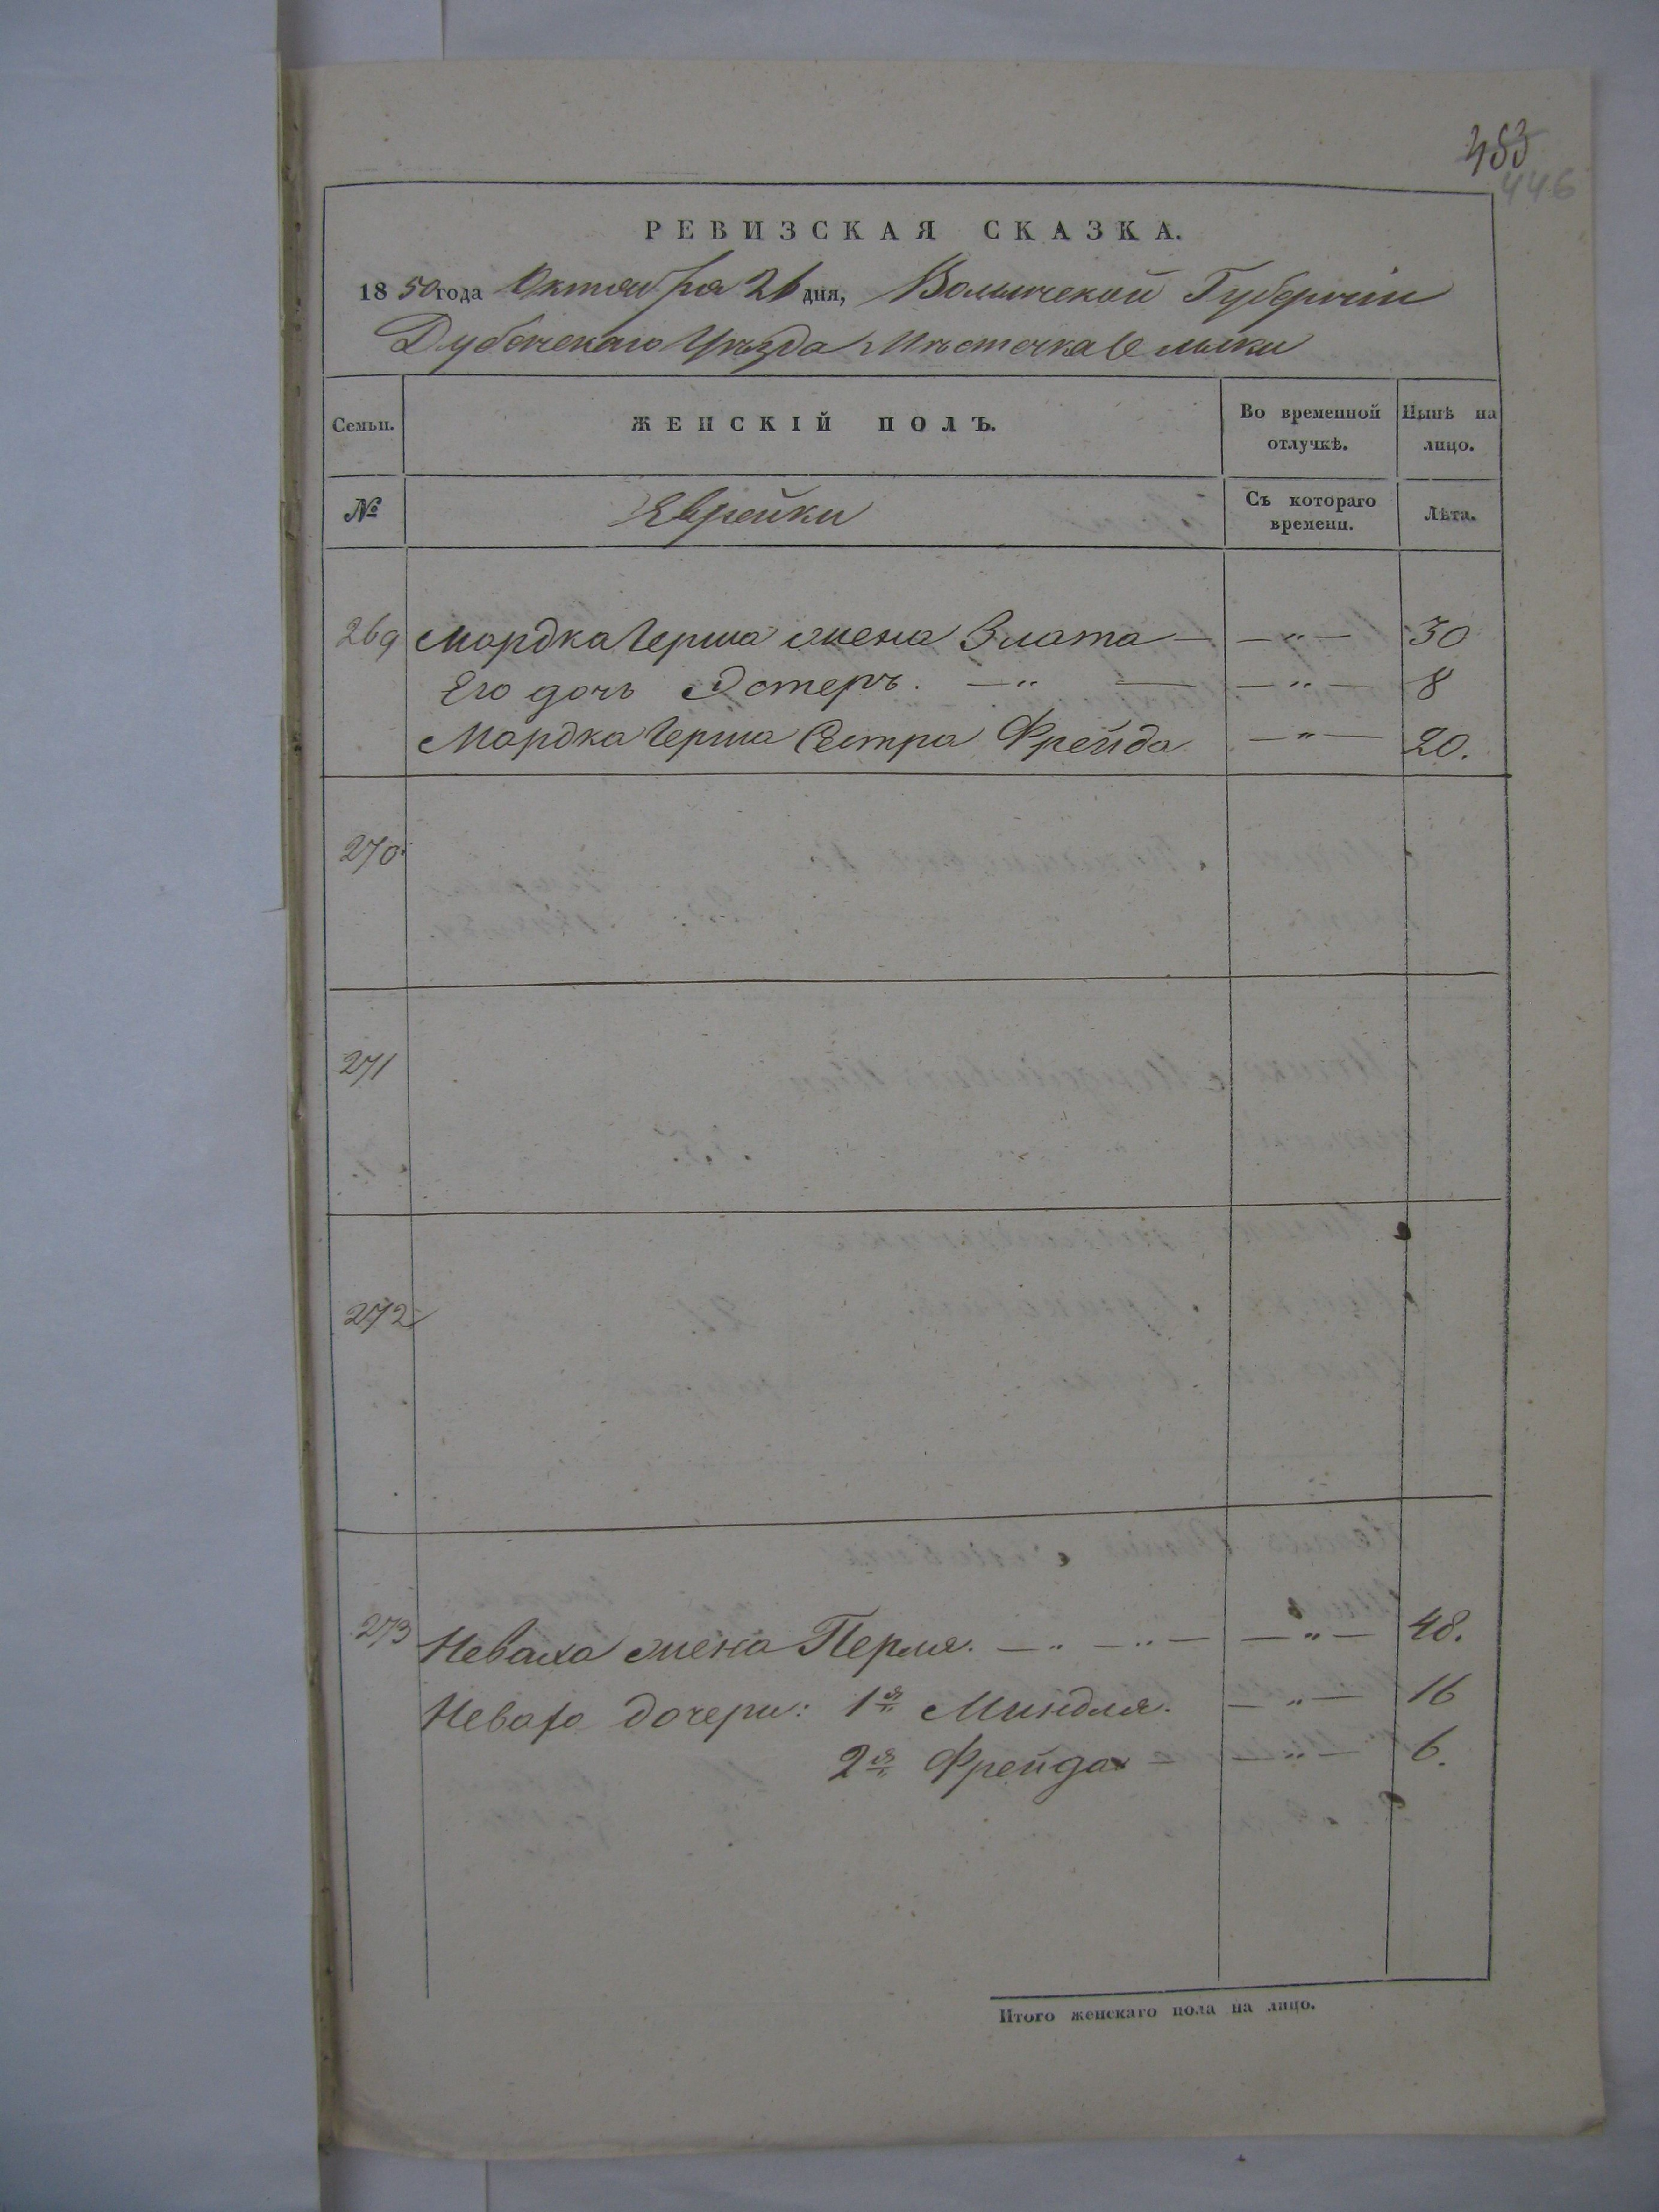 453
446
РЕВИЗСКАЯ СКАЗКА.
1850 года Октября 26 дня, Волынской Губерніи
Дубенскаго Уѣзда Мѣстечка
Семьи.
ЖЕНСКІЙ ПОЛЪ.
Во временной отлучкѣ.
Нынѣ на лицо.
№
Еврейки
Съ котораго времени.
Лѣта.
269 Мордка Герша жена Злата — — „ — 30
Его дочь Эстеръ. — „ — — „ — 8
Мордка Герша Сестра Фрейда — „ — 20.
270
271
272
273 Неваха жена Перля. — „ — „ — — „ — 48.
Неваха дочери: 1я Миндля. — „ — 16
2я Фрейда — — „ — 6.
Итого женскаго пола на лицо.